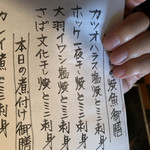 焼魚御膳
カツオハラス塩焼とミニ刺身
ホッケ一夜干し焼とミニ刺身
大羽イワシ塩焼とミニ刺身
さば文化干し焼とミニ刺身
本日の煮付け御膳
カレイ煮とミニ刺身